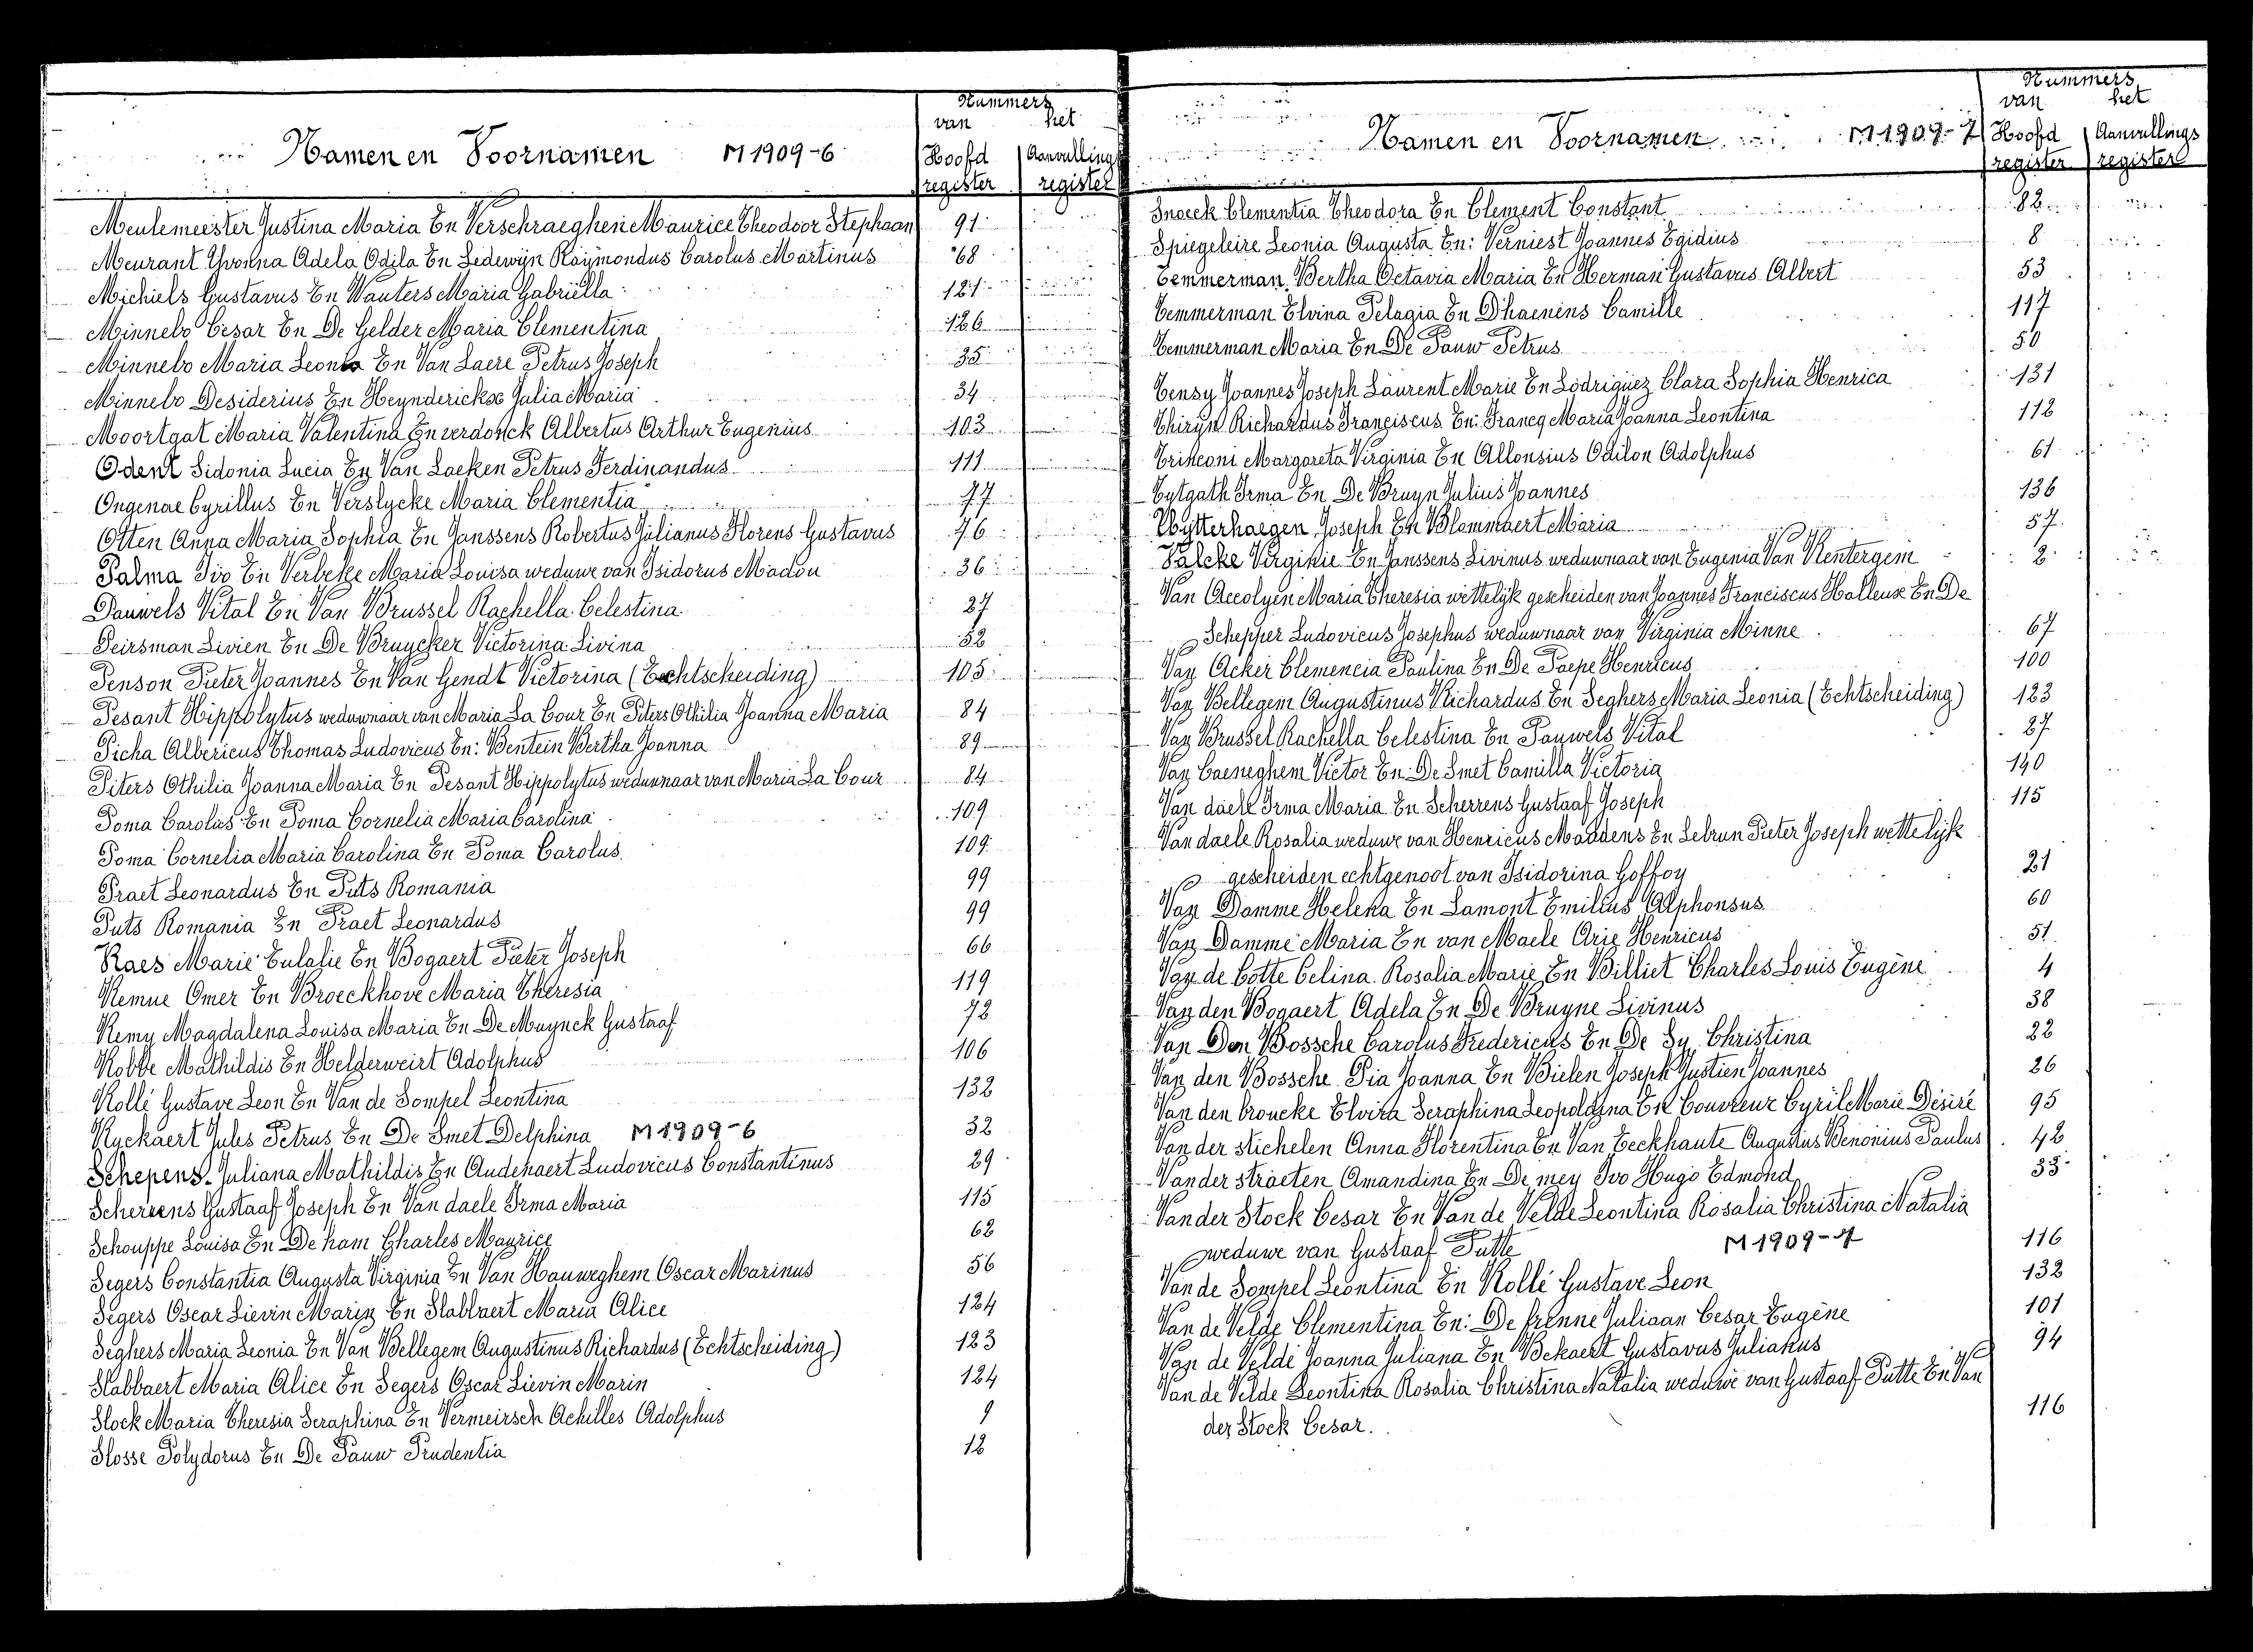 Nummers
van het
Namen en Voornamen M1909-6 Hoofd register Aanvullings register
Meulemeister Justina Maria En Verschraeghen Maurice Theodoor Stephaan 91
Meurant Yvonna Adela Odila En Ledewyn Raymondus Carolus Martinus 68
Michiels Gustavus En Wauters Maria Gabriella 121
Minnebo Cesar En De Gelder Maria Clementina 126
Minnebo Maria Leonia En Van Laere Petrus Joseph 35
Minnebo Desiderius En Heynderickx Julia Maria 34
Moortgat Maria Valentina En verdonck Albertus Arthur Eugenius 103
Odent Sidonia Lucia En Van Laeken Petrus Ferdinandus 111
Ongenae Cyrillus En Verslycke Maria Clementia 77
Otten Anna Maria Sophia En Janssens Robertus Julianus Florens Gustavus 76
Palma Ivo En Verbeke Maria Louisa weduwe van Isidorus Madou 36
Pauwels Vital En Van Brussel Rachella Celestina 27
Peirsman Livien En De Bruycker Victorina Livina 52
Penson Pieter Joannes En Van Gendt Victorina (Echtscheiding) 105
Pesant Hippolytus weduwnaar van Maria La Cour En Piters Othilia Joanna Maria 84
Picha Albericus Thomas Ludovicus En: Bentein Bertha Joanna 89
Piters Othilia Joanna Maria En Pesant Hippolytus weduwnaar van Maria La Cour 84
Poma Carolus En Poma Cornelia Maria Carolina 109
Poma Cornelia Maria Carolina En Poma Carolus 109
Praet Leonardus En Puts Romania 99
Puts Romania En Praet Leonardus 99
Raes Marie Eulalie En Bogaert Pieter Joseph 66
Remue Omer En Broeckhove Maria Theresia 119
Remy Magdalena Louisa Maria En De Muynck Gustaaf 72
Robbe Mathildis En Helderweirt Adolphus 106
Rollé Gustave Leon En Van de Sompel Leontina 132
Ryckaert Jules Petrus En De Smet Delphina M1909-6 32
Schepens Juliana Mathildis En Audenaert Ludovicus Constantinus 29
Scherrens Gustaaf Joseph En Van daele Irma Maria 115
Schouppe Louisa En De ham Charles Maurice 62
Segers Constantia Augusta Virginia En Van Hauweghem Oscar Marinus 56
Segers Oscar Lievin Marin En Slabbaert Maria Alice 124
Seghers Maria Leonia En Van Bellegem Augustinus Richardus (Echtscheiding) 123
Slabbaert Maria Alice En Segers Oscar Lievin Marin 124
Slock Maria Theresia Seraphina En Vermeirsch Achilles Adolphus 9
Slosse Polydorus En De Pauw Prudentia 12
Nummers
van het
Namen en Voornamen M1909-7 Hoofd register Aanvullings register
Snoeck Clementia Theodora En Clement Constant 82
Spiegeleire Leonia Augusta En: Verniest Joannes Egidius 8
Temmerman Bertha Octavia Maria En Herman Gustavus Albert 53
Temmerman Elvina Pelagia En D'haenens Camille 117
Temmerman Maria En De Pauw Petrus 50
Tensy Joannes Joseph Laurent Marie En Lodriguez Clara Sophia Henrica 131
Thiryn Richardus Franciscus En: Francq Maria Joanna Leontina 112
Trinconi Margareta Virginia En Allonsius Odilon Adolphus 61
Tytgath Irma En De Bruyn Julius Joannes 136
Uytterhaegen Joseph En Blommaert Maria 57
Valcke Virginie En Janssens Livinus weduwnaar van Eugenia Van Rentergem 2
Van Accolyen Maria Theresia wettelijk gescheiden van Joannes Franciscus Halleux En De
Schepper Ludovicus Josephus weduwnaar van Virginia Minne 67
Van Acker Clemencia Paulina En De Paepe Henricus 100
Van Bellegem Augustinus Richardus En Seghers Maria Leonia (Echtscheiding) 123
Van Brussel Rachella Celestina En Pauwels Vital 27
Van Caeneghem Victor En: De Smet Camilla Victoria 140
Van daele Irma Maria En Scherrens Gustaaf Joseph 115
Van daele Rosalia weduwe van Henricus Maddens En Lebrun Pieter Joseph wettelijk
gescheiden echtgenoot van Isidorina Goffoy 21
Van Damme Helena En Lamont Emilius Alphonsus 60
Van Damme Maria En van Maele Arie Henricus 51
Van de Cotte Celina Rosalia Marie En Billiet Charles Louis Eugène 4
Van den Bogaert Adela En De Bruyne Livinus 38
Van Den Bossche Carolus Fredericus En De Sy Christina 22
Van den Bossche Pia Joanna En Bielen Joseph Justien Joannes 26
Van den broucke Elvira Seraphina Leopoldina En Couvreur Cyril Marie Désiré 95
Van der stichelen Anna Florentina En Van Eeckhaute Augustus Benonius Paulus 42
Van der straeten Amandina En De mey Ivo Hugo Edmond 33
Van der Stock Cesar En Van de Velde Leontina Rosalia Christina Natalia
weduwe van Gustaaf Putte M1909-7 116
Van de Sompel Leontina En Rollé Gustave Leon 132
Van de Velde Clementina En: De frenne Juliaan Cesar Eugène 101
Van de Velde Joanna Juliana En Bekaert Gustavus Julianus 94
Van de Velde Leontina Rosalia Christina Natalia weduwe van Gustaaf Putte En Van
der Stock Cesar. 116